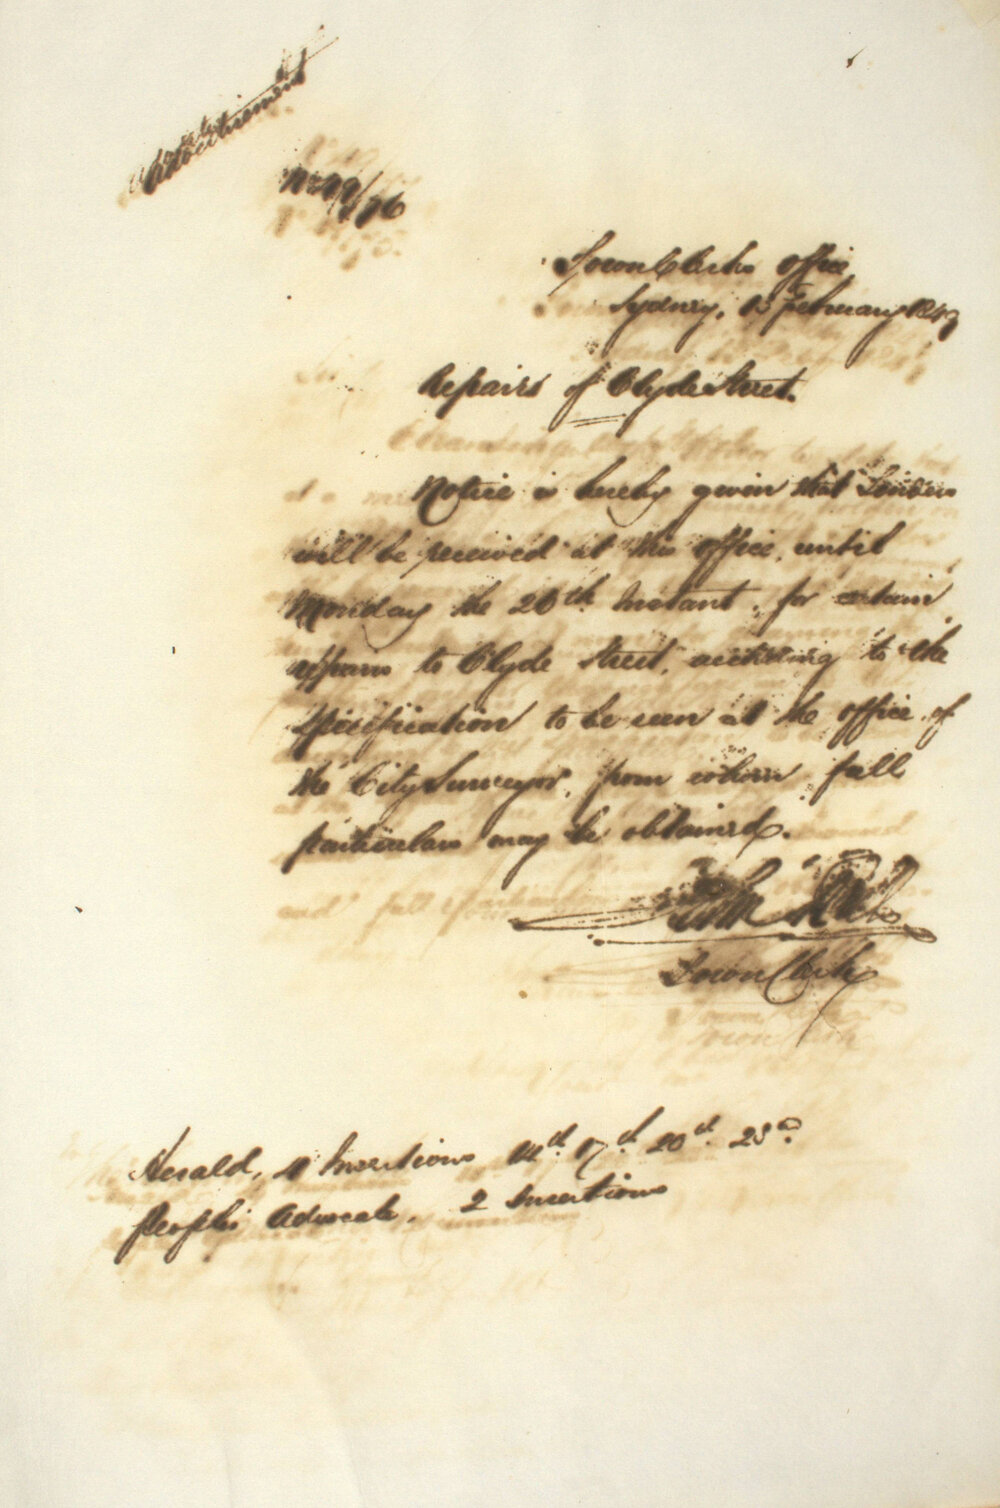 Advertisement
No 49/76
Town Clerks Office
Sydney, 13 February 1849
Repairs of Clyde Street.
Notice is hereby given that Tenders
will be received at this office, until
Monday the 26th Instant, for certain
repairs to Clyde Street, according to the
Specification to be seen at the office of
the City Surveyor, from whom full
particulars may be obtained.
Town Clerk
Herald, 4 Insertions 14th 17th 20th 23rd
People's Advocate, 2 Insertions